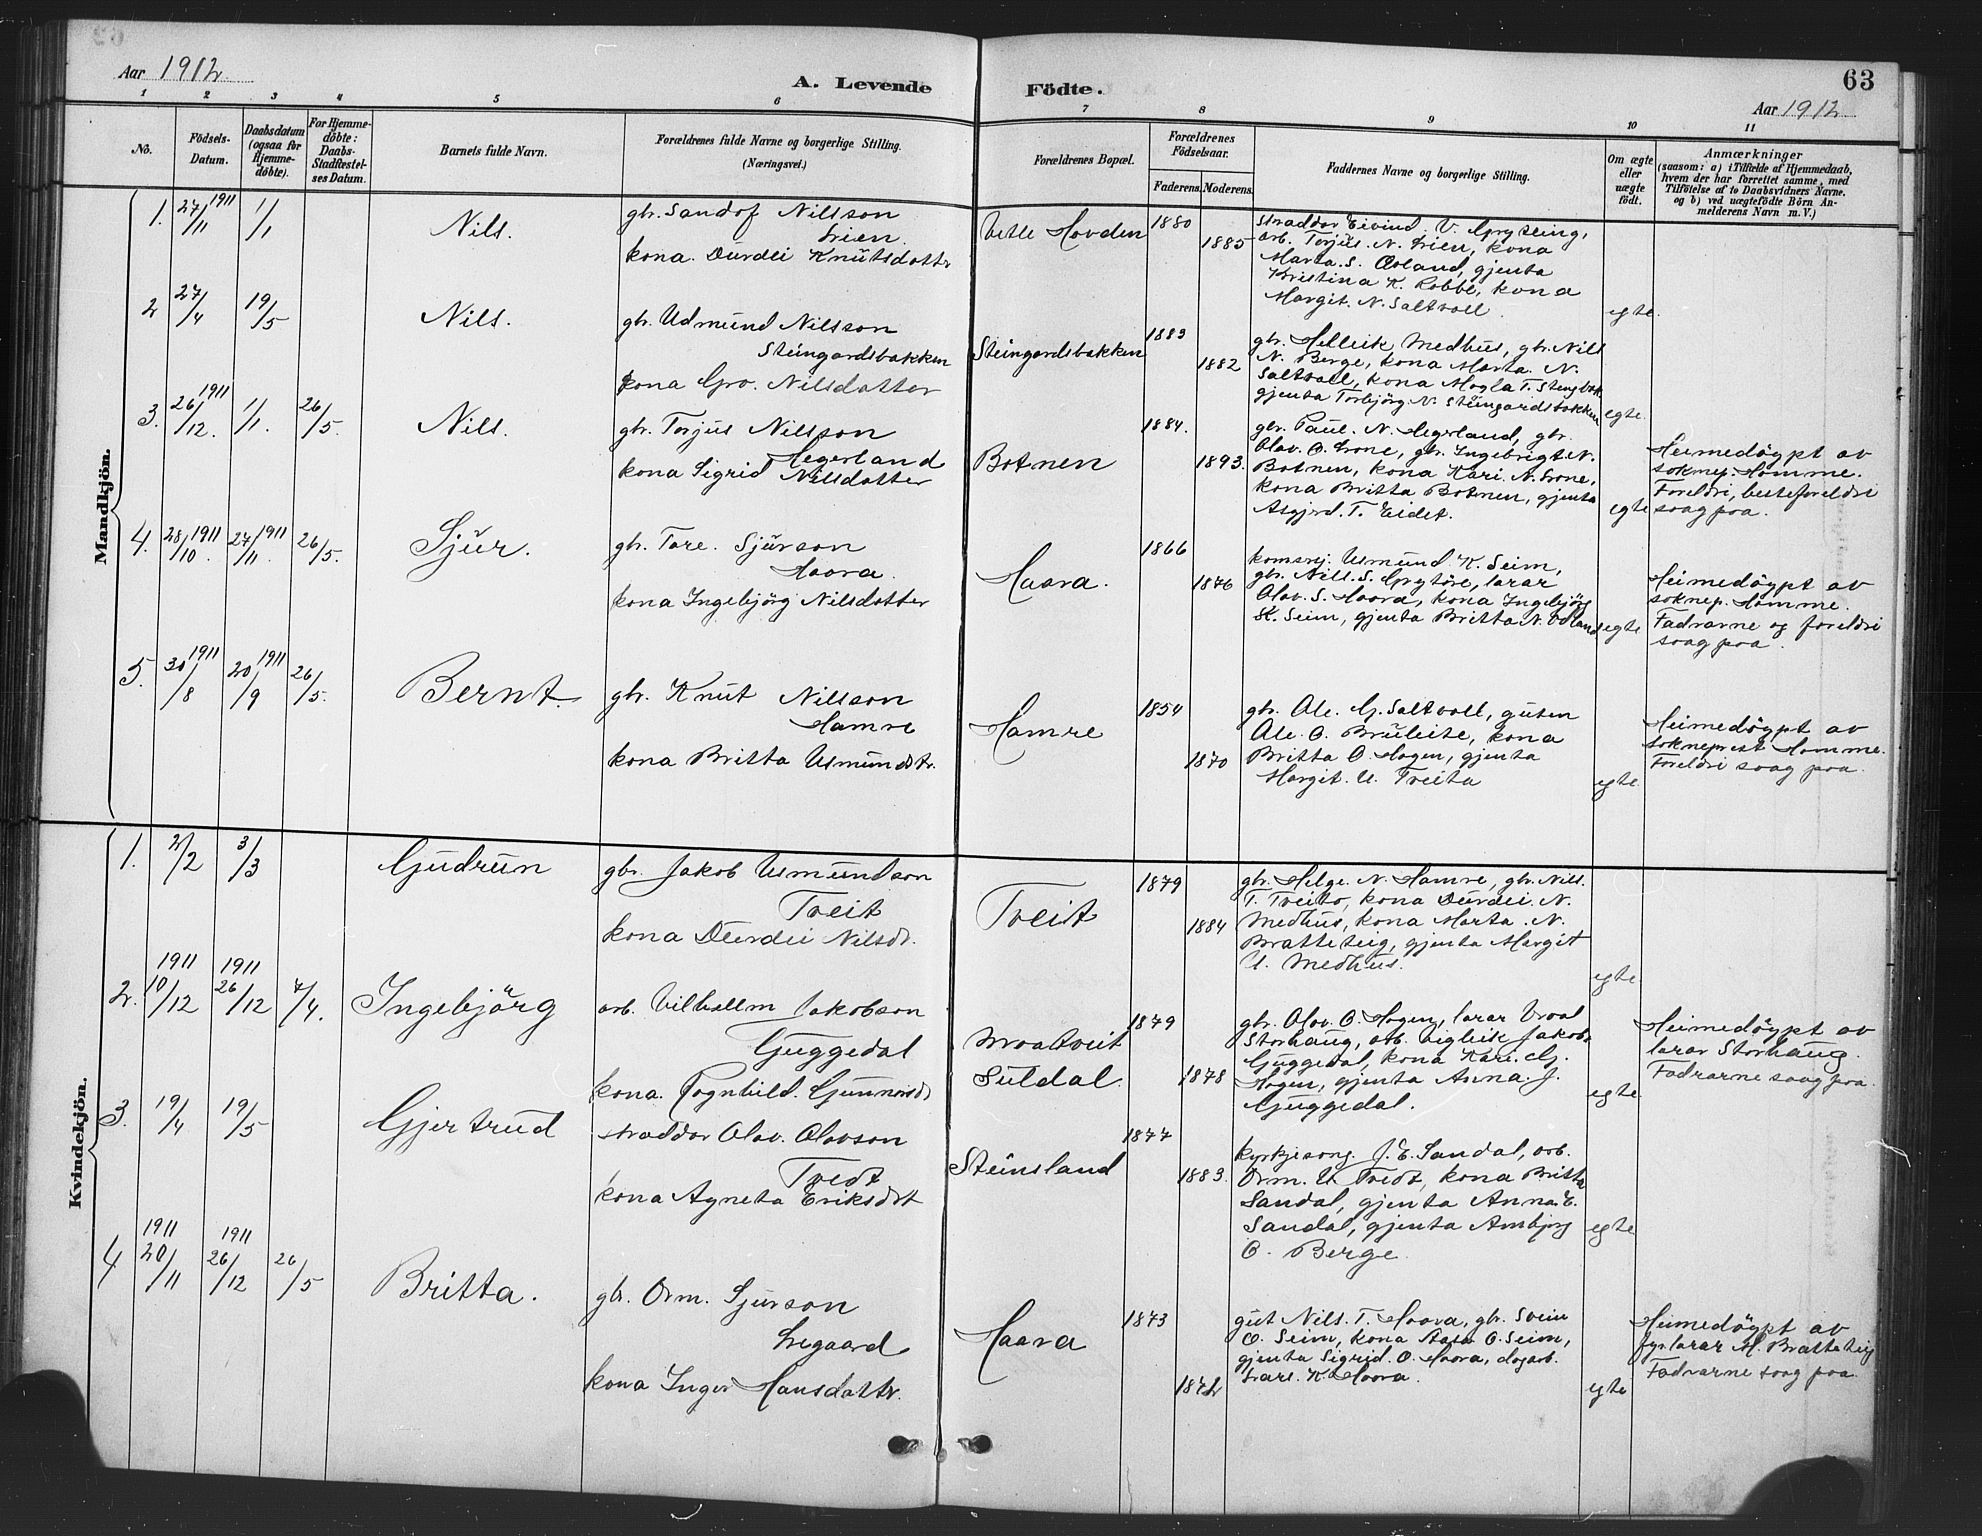 Aar 1912
A. Levende Födte.
63
Aar 1912
1 2 3 4 5 6 7 8 9 10 11
No.
Födsels-
Datum.
Daabsdatum
(ogsaa for
Hjemme-
döbte).
For Hjemme-
döbte:
Daabs-
Stadfæstel-
ses Datum.
Barnets fulde Navn.
Forældrenes fulde Navne og borgerlige Stilling.
(Næringsvei.)
Forældrenes Bopæl.
Forældrenes
Födselsaar.
Faderens. Moderens.
Faddernes Navne og borgerlige Stilling.
Om ægte
eller
uægte
födt.
Anmærkninger
(saasom: a) i Tilfælde af Hjemmedaab,
hvem der har forrettet samme, med
Tilföielse af to Daabsvidners Navne.
og b) ved uægtefödte Börn An-
melderens Navn m. V.)
Mandkjön.
1. 27/11 1911 1/1 Nils.
gbr. Sandof Nilsson
Lien.
kona. Durdei Knutsdottr
Vetle Hovden 1880
1885
straddor Eivind V. Gryteing,
arb. Torjus. N. Lien, kona
Marta. S. Øvland, gjenta
Kristina K. Robbe, kona
Margit. N. Saltvoll.
egte.
2 27/4 19/5 Nils.
gbr. Udmund Nilsson
Steingardsbakken
kona Gro. Nilsdatter
Steingardsbakken 1883
1882
gbr. Helleik Medhus, gbr. Nils
N. Berge, kona Marta. N.
Saltvoll, kona Magla T. Stengbak
gjenta Torbjörg N. Steingardsbakken
egte.
3. 26/12. 1911 1/1. 26/5. Nils.
gbr. Torjus Nilsson
Hegerland
kona Sigrid Nilsdatter
Botnen
1884.
1893.
gbr. Paul. N. Hegerland, gbr.
Olav. O. Lone, gbr. Ingebrigt N.
Botnen, kona Kari. N. Lone,
kona Britta Botnen, gjenta
Asgjerd. T. Eidet.
egte
Heimedöypt av
soknep. Homme.
Foreldri, besteforeldri
saag paa.
4. 28/10. 1911 27/11. 1911 26/5. Sjur.
gbr. Tore. Sjurson
Haara.
kona Ingebjörg Nilsdatter
Haara.
1866
1876
komsrj. Usmund K. Seim,
gbr. Nils. S. Grytöre, lærar
Olav. S. Haara, kona Ingebjörg
K. Seim, gjenta Britta N. Ødland
egte
Heimedöypt av
soknep. Homme.
Fadrarne og foreldri
saag paa.
5. 30/8 1911 20/9 1911 26/5. Bernt.
gbr. Knut Nilsson
Hamre
kona Britta Usmundstr.
Hamre
1854
1870
gbr. Ole. G. Saltvoll, guten
Ole. O. Bruleite, kona
Britta O. Hagen, gjenta
Margit. U. Treita
egte.
Heimedöypt av
sokneprest Homme.
Foreldri saag paa.
Kvindekjön.
1. 2/2 3/3 Gudrun
gbr. Jakob Usmundson
Treit
kona Durdei Nilsdr.
Treit
1879
1884
gbr. Helge. N. Hamre, gbr. Nils.
T. Treito, kona Durdei. N.
Medhus, kona Marta. N.
Bratteteig, gjenta Margit
U. Medhus.
egte
2. 10/12 1911 26/12 1911 7/4. Ingebjörg
arb. Vilhellm Jakobson
Guggedal
kona. Rognhild. Gunnarsd.
Mvaatveit
Suldal.
1879
1878
gbr. Olav. O. Hagen, lærar Vraal
Storhaug, arb. Vigleik Jakobs.
Guggedal, kona Kari. G.
Hagen, gjenta Anna. J.
Guggedal.
egte
Heimedöypt av
lærar Storhaug.
Fadrarne saag paa.
3. 19/4 19/5 Gjertrud
straddar Olav. Olavson
Tredt
kona Agneta Eriksdot
Steinsland
1877
1883.
kyrkjesong. J. E. Sandal, arb.
Orm. U. Tredt, kona Britta
Sandal, gjenta Anna E.
Sandal, gjenta Ambjörg
O. Berge.
egte
4 20/11 1911 26/12 1911 26/5 Britta.
gbr. Orm. Sjurson
Legaard
kona Inger Hansdottr.
Haara
1873
1872
gut Nils. T. Haara, gbr. Svein
O. Seim, kona Aasa O. Seim,
gjenta Sigrid. O. Haara, dagarb.
Lars. K. Haara.
egte
Heimedöypt av
fyr. lærar H. Bratteteig
Fadrarne saag paa.